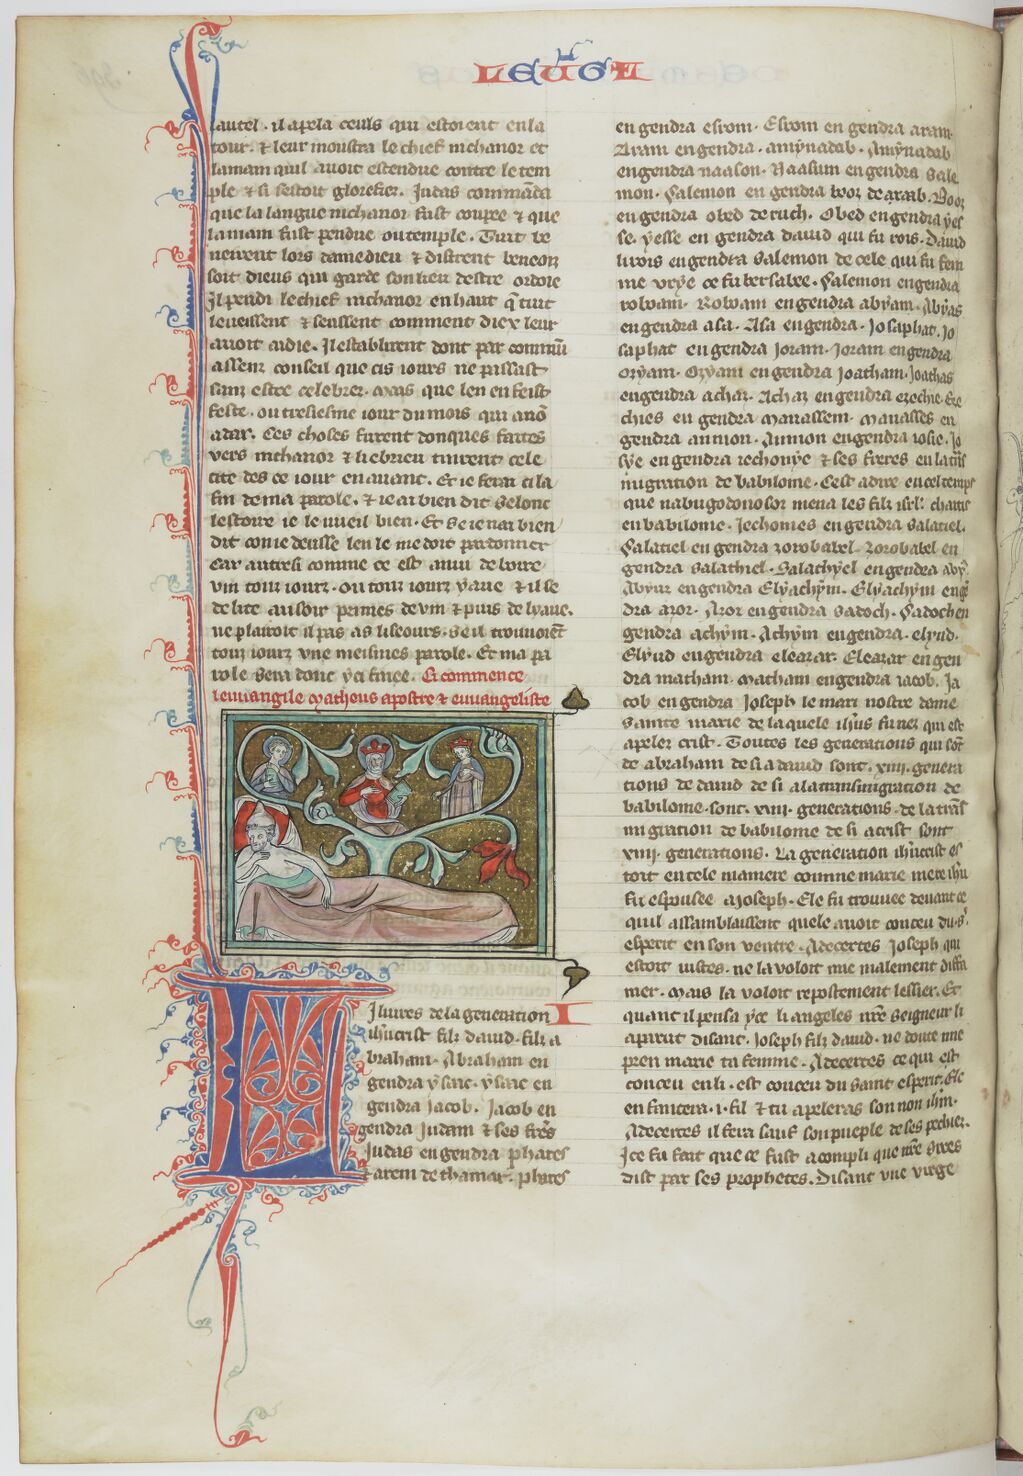 LEUGE
lautel . il apela ceuls qui estoient en la
tour . ⁊ leur moustra le chief nichanor et
la main quil auoit estendue contre le tem
ple ⁊ si sestoit glorefiez . Iudas commāda
que la langue nichanor fust coupee ⁊ que
la main fust pendue ou temple . Tuit be
neirent lors damedieu ⁊ distrent beneoiz
soit dieus qui garde son lieu destre ordoie
Il pendi le chief nichanor en haut q̄ tuit
leueissent ⁊ seussent comment diex leur
auoit aidie . Il establirent dont par commū
assenz conseil que cis iours ne passast
sanz estre celebrez . Mais que len en feist
feste . ou tresiesme iour du mois qui a nō
adar . Ces choses furent donques faites
vers nichanor ⁊ li ebrieu tinrent cele
cite des ce iour en auant . Et ie ferai ci la
fin de ma parole . ⁊ ie ai bien dit selonc
lestoire ie le vueil bien . Et se ie nai bien
dit com ie deusse len le me doit pardonner
Car autresi comme ce est anui de boire
vin touz iourz . ou touz iourz yaue ⁊ il se
delite au boir primes de vin ⁊ puis de lyaue .
ne plairoit il pas as liseours . se il trouuoiēt
touz iourz vne meismes parole . Et ma pa
role sera donc yci finee . Ci commence
leuuangile Matheus apostre ⁊ euuangeliste
I liures de la generation
ih̄ucrist filz dauid . filz a
braham . Abraham en
gendra ysaac . ysaac en
gendra iacob . Iacob en
gendra Iudam ⁊ ses freš
Iudas engendra phares
⁊ arem de thamar . phares
engendra esrom . Esrom engendra aram .
Aram engendra . amynadab . Amynadab
engendra naason . Naasum engendra sale
mon . Salemon engendra booz de araab . Booz
engendra obed de ruth . Obed engendra yes
se . yesse engendra dauid qui fu rois . Dauid
li rois engendra salemon de cele qui fu fem
me vrye ce fu bersabee . Salemon engendra
roboam . Roboam engendra abyam . Abyas
engendra asa . Asa engendra . Iosaphat . Io
saphat engendra Ioram . Ioram engendra
Ozyam . Ozyam engendra Ioatham . Ioathas
engendra achaz . Achaz engendra ezechie . Eze
chies engendra Manassem . Manasses en
gendra amnon . Amnon engendra iosie . Io
sye engendra iechonye ⁊ ses freres en la trās
migration de babilone . Cest a dire en cel temps
que nabugodonosor mena les filz isrl̄ . chaitis
en babilone . Iechonies engendra salatiel .
Salatiel engendra zorobabel . zorobabel en
gendra salathiel . Salathyel engendra Aby .
Abyur engendra Elyachym . Elyachym engē
dra azor . Azor engendra sadoch . Sadoch en
gendra achym . Achym engendra . elyud .
Elyud engendra eleazar . Eleazar engen
dra matham . Matham engendra iacob . Ia
cob engendra Ioseph le mari nostre dame
sainte marie de la quele ih̄us fu nez qui est
apelez crist . Toutes les generations qui sōt
de abraham desi a dauid sont . xiiii . genera
tions de dauid de si a la transmigration de
babilone . sont . xiiii . generations . de la trās
migration de babilone de si a crist sont
xiiii . generations . La generation ih̄ucrist est
tout en tele maniere comme marie mere ih̄u
fu espousee a Ioseph . Ele fu trouuee deuant ce
quil assamblaissent quele auoit conceu du . s̄ .
esperit en son ventre . Adecertes Ioseph qui
estoit iustes . ne la volt mie malement diffa
mer . Mais la volt repostement lessier . Et
quant il pensa yce li angeles nr̄e seigneur li
aparut disant . Ioseph filz dauid . ne doute mie
pren marie ta femme . Adecertes ce qui est
conceu en li . est conceu du saint esperit . Ele
enfantera . i . fil ⁊ tu apeleras son non ih̄m .
Adecertes il fera sauf son pueple de ses pechiez .
Ice fu fait que ce fust acompli que nr̄e sires
dist par ses prophetes . Disant vne virge